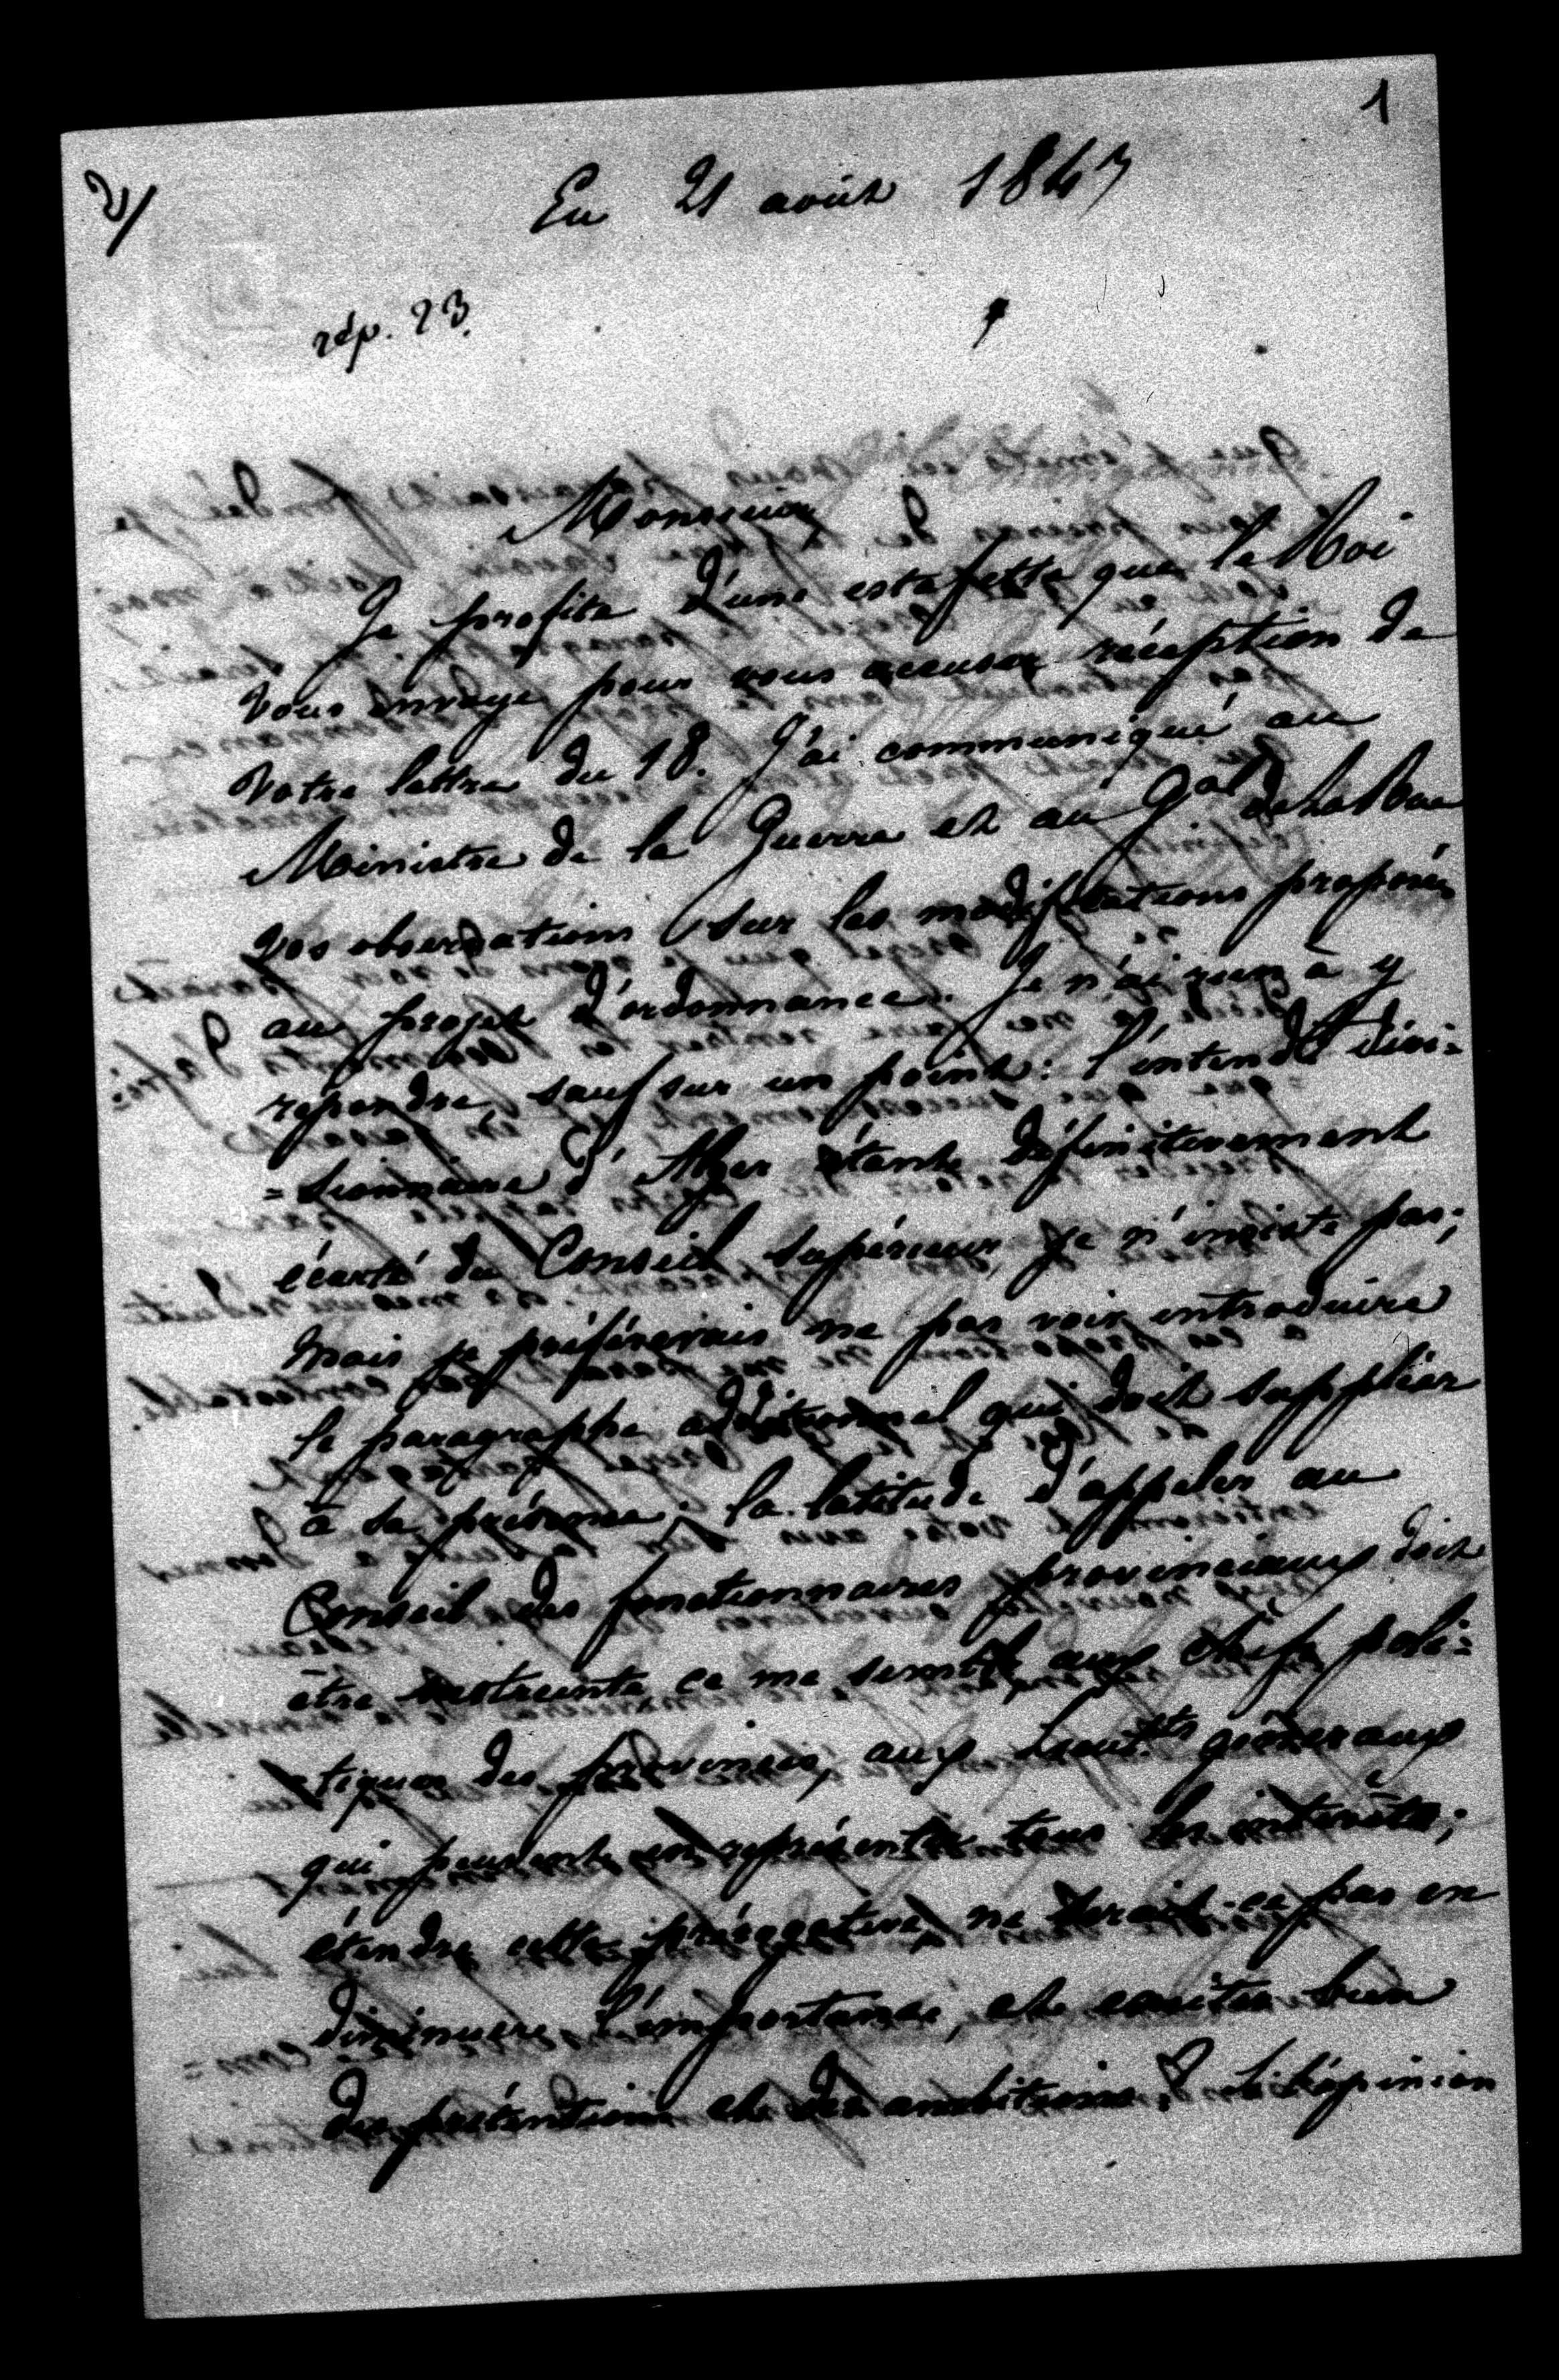 1
2/
Eu 21 août 1847
rép. 23.
Monsieur
Je profite d'une estafette que le Roi
vous envoye pour vous accuser réception de
votre lettre du 18. J'ai communiqué au
Ministre de la Guerre et au Gal de La Rue
vos observations sur les modifications proposées
au projet d'ordonnance. Je n'ai rien à y
repondre, sauf sur un point: l'intendt divi=
=sionnaire d'Alger étant définitivement
écarté du Conseil supérieur, je n'insiste pas;
mais je préférerais ne pas voir introduire
le paragraphe additionnel qui doit suppléer
à sa présence. la latitude d'appeler au
Conseil des fonctionnaires provinciaux doit
être restreinte ce me semble aux chefs poli=
=tiques des provinces, aux Lieut.ts généraux
qui peuvent en représenter tous les intérêts;
étendre cette prérogative, ne serait-ce pas en
diminuer l'importance, et exciter bien
des prétentions et des ambitions? Si l'opinion